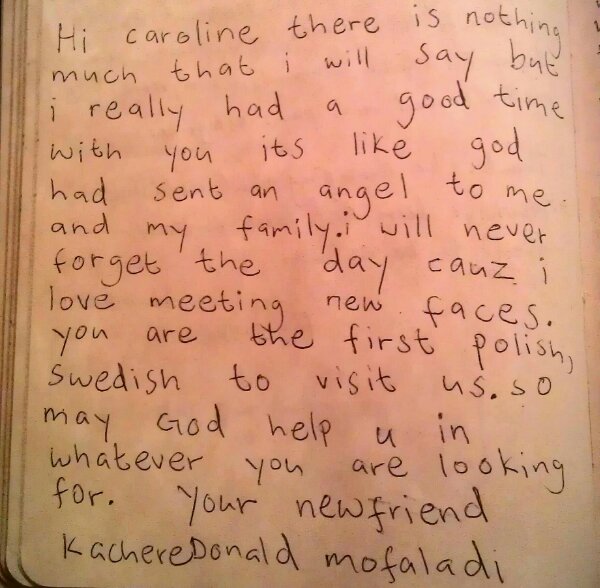 Hi caroline there is nothing
much that i will say but
i really had a good time
with you its like god
had sent an angel to me
and my family.i will never
forget the day cauz i
love meeting new faces.
you are the first polish,
Swedish to visit us. so
may God help u in
whatever you are looking
for. Your newfriend
KachereDonald mofaladi